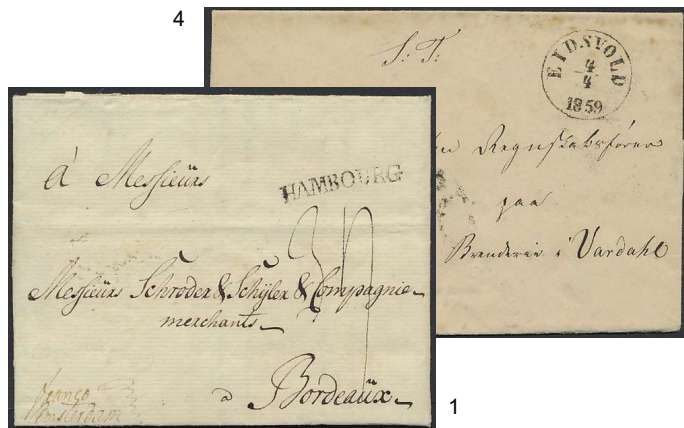 4
S: T:
EIDSVOLD
4/4
1859
Regnskabsfører
paa
Brænderie i Vardahl
à Messieurs
HAMBOURG
Messieurs Schröder & Schÿler & Compagnie
merchants
à Bordeaüx
franco
Amsterdam
1